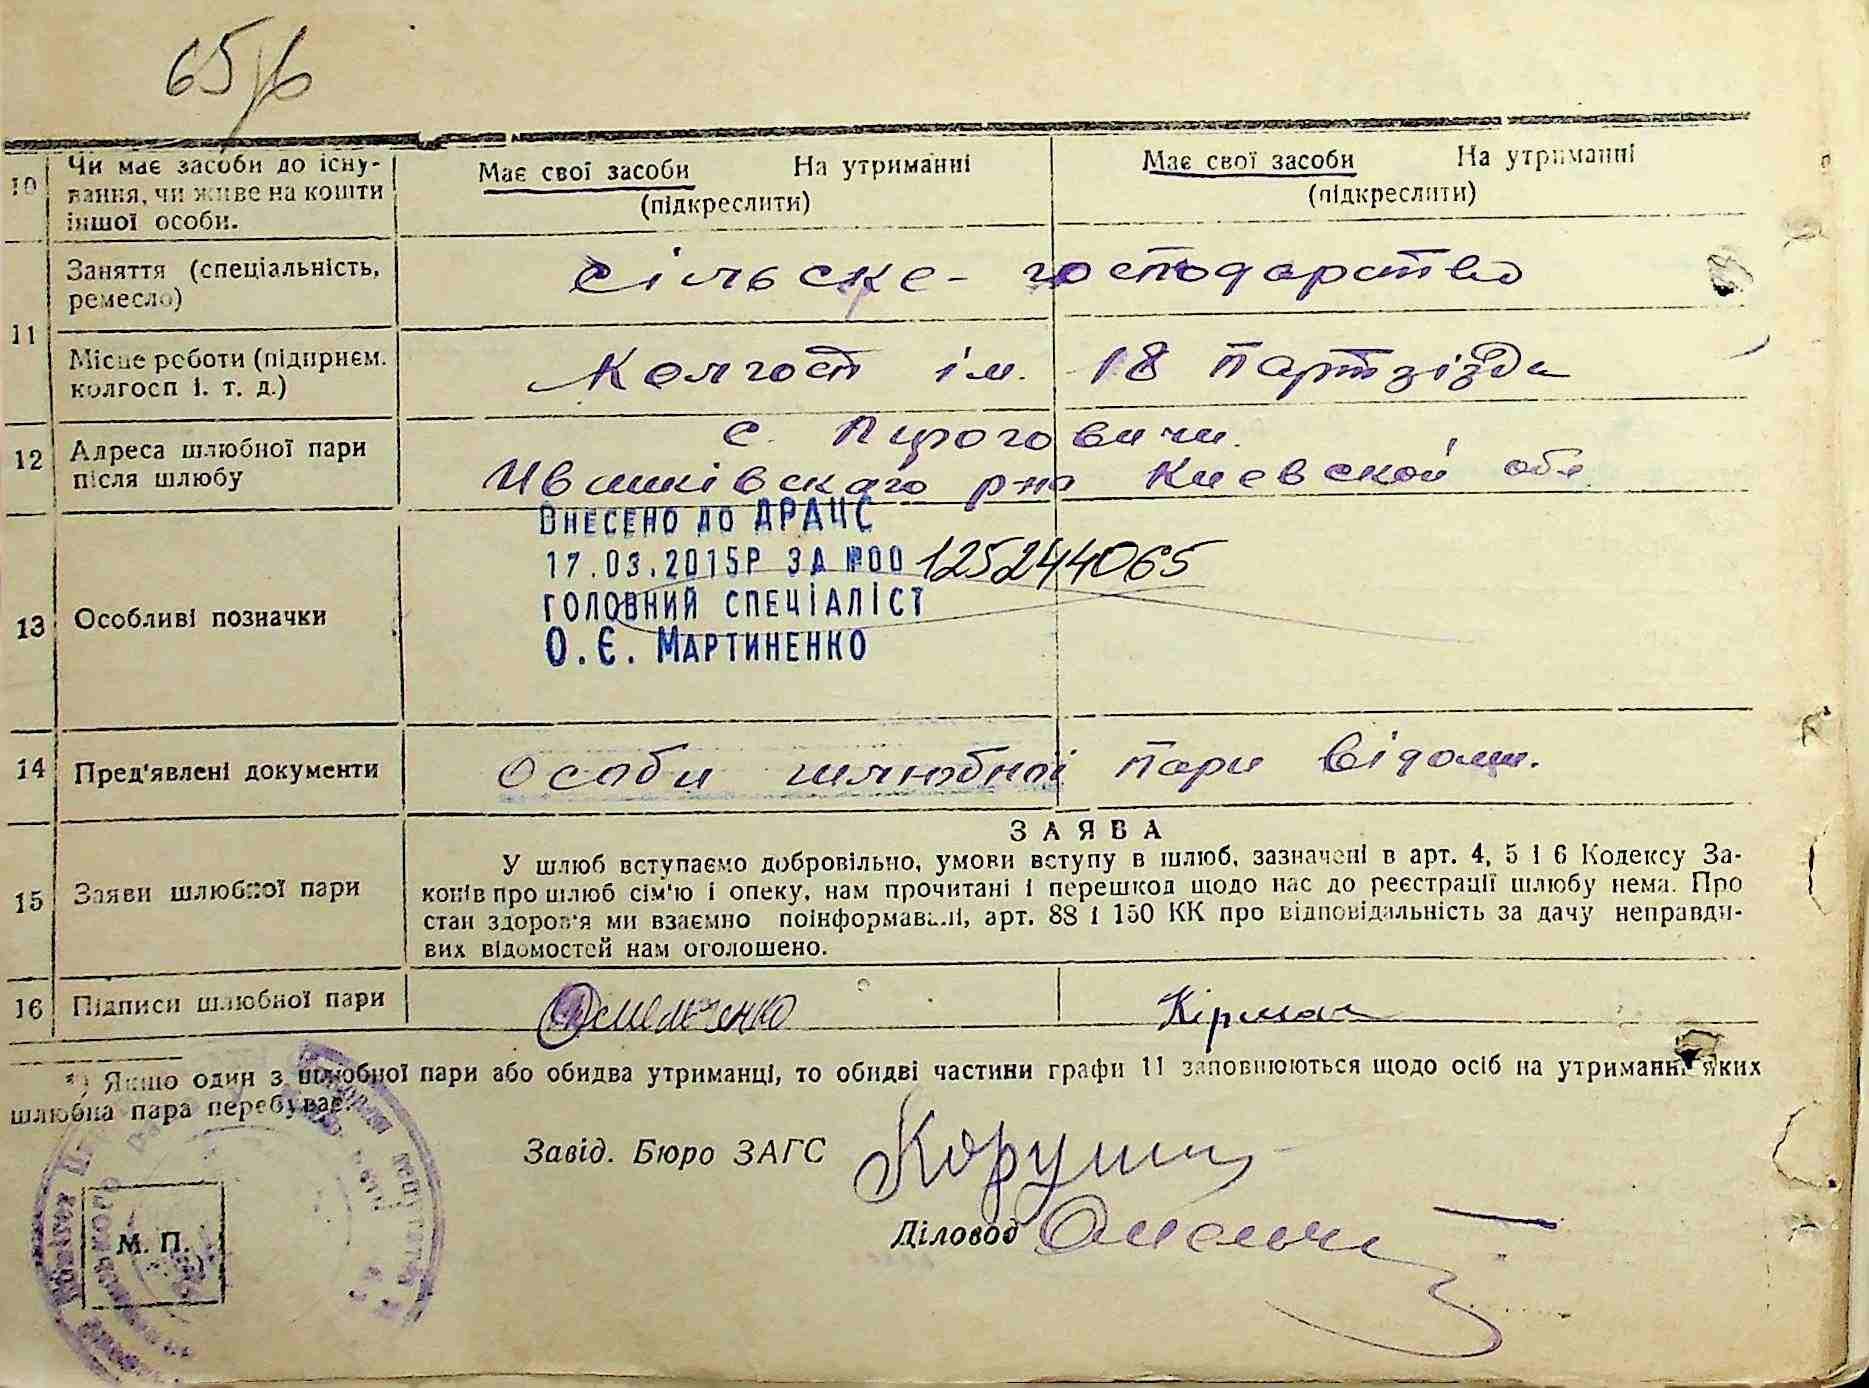 65/6
10 Чи має засоби до існу-
вання, чи живе на кошти
іншої особи.
Має свої засоби На утриманні
(підкреслити)
Має свої засоби На утриманні
(підкреслити)
11 Заняття (спеціальність,
ремесло)
сільске - господарство
Місце роботи (підприєм.
колгосп і. т. д.)
Колгосп ім. 18 партзізда
12 Адреса шлюбної пари
після шлюбу
с. Пироговичи.
Іванківского р-на Киевской обл
13 Особливі позначки
Внесено до ДРАЦС
17.03.2015р за №00 125244065
головний спеціаліст
О.Є. Мартиненко
14 Пред'явлені документи
Особи шлюбної пари відоми.
15 Заяви шлюбної пари
ЗАЯВА
У шлюб вступаємо добровільно, умови вступу в шлюб, зазначені в арт. 4, 5 і 6 Кодексу За-
конів про шлюб сім'ю і опеку, нам прочитані і перешкод щодо нас до реєстрації шлюбу нема. Про
стан здоров'я ми взаємно поінформавалі, арт. 88 і 150 КК про відповідальність за дачу неправди-
вих відомостей нам оголошено.
16 Підписи шлюбної пари
Омельченко
Кірман
*) Якшо один з шлюбної пари або обидва утриманці, то обидві частини графи 11 заповнюються щодо осіб на утриманні яких
шлюбна пара перебуває.
Завід. Бюро ЗАГС
Діловод
М. П.